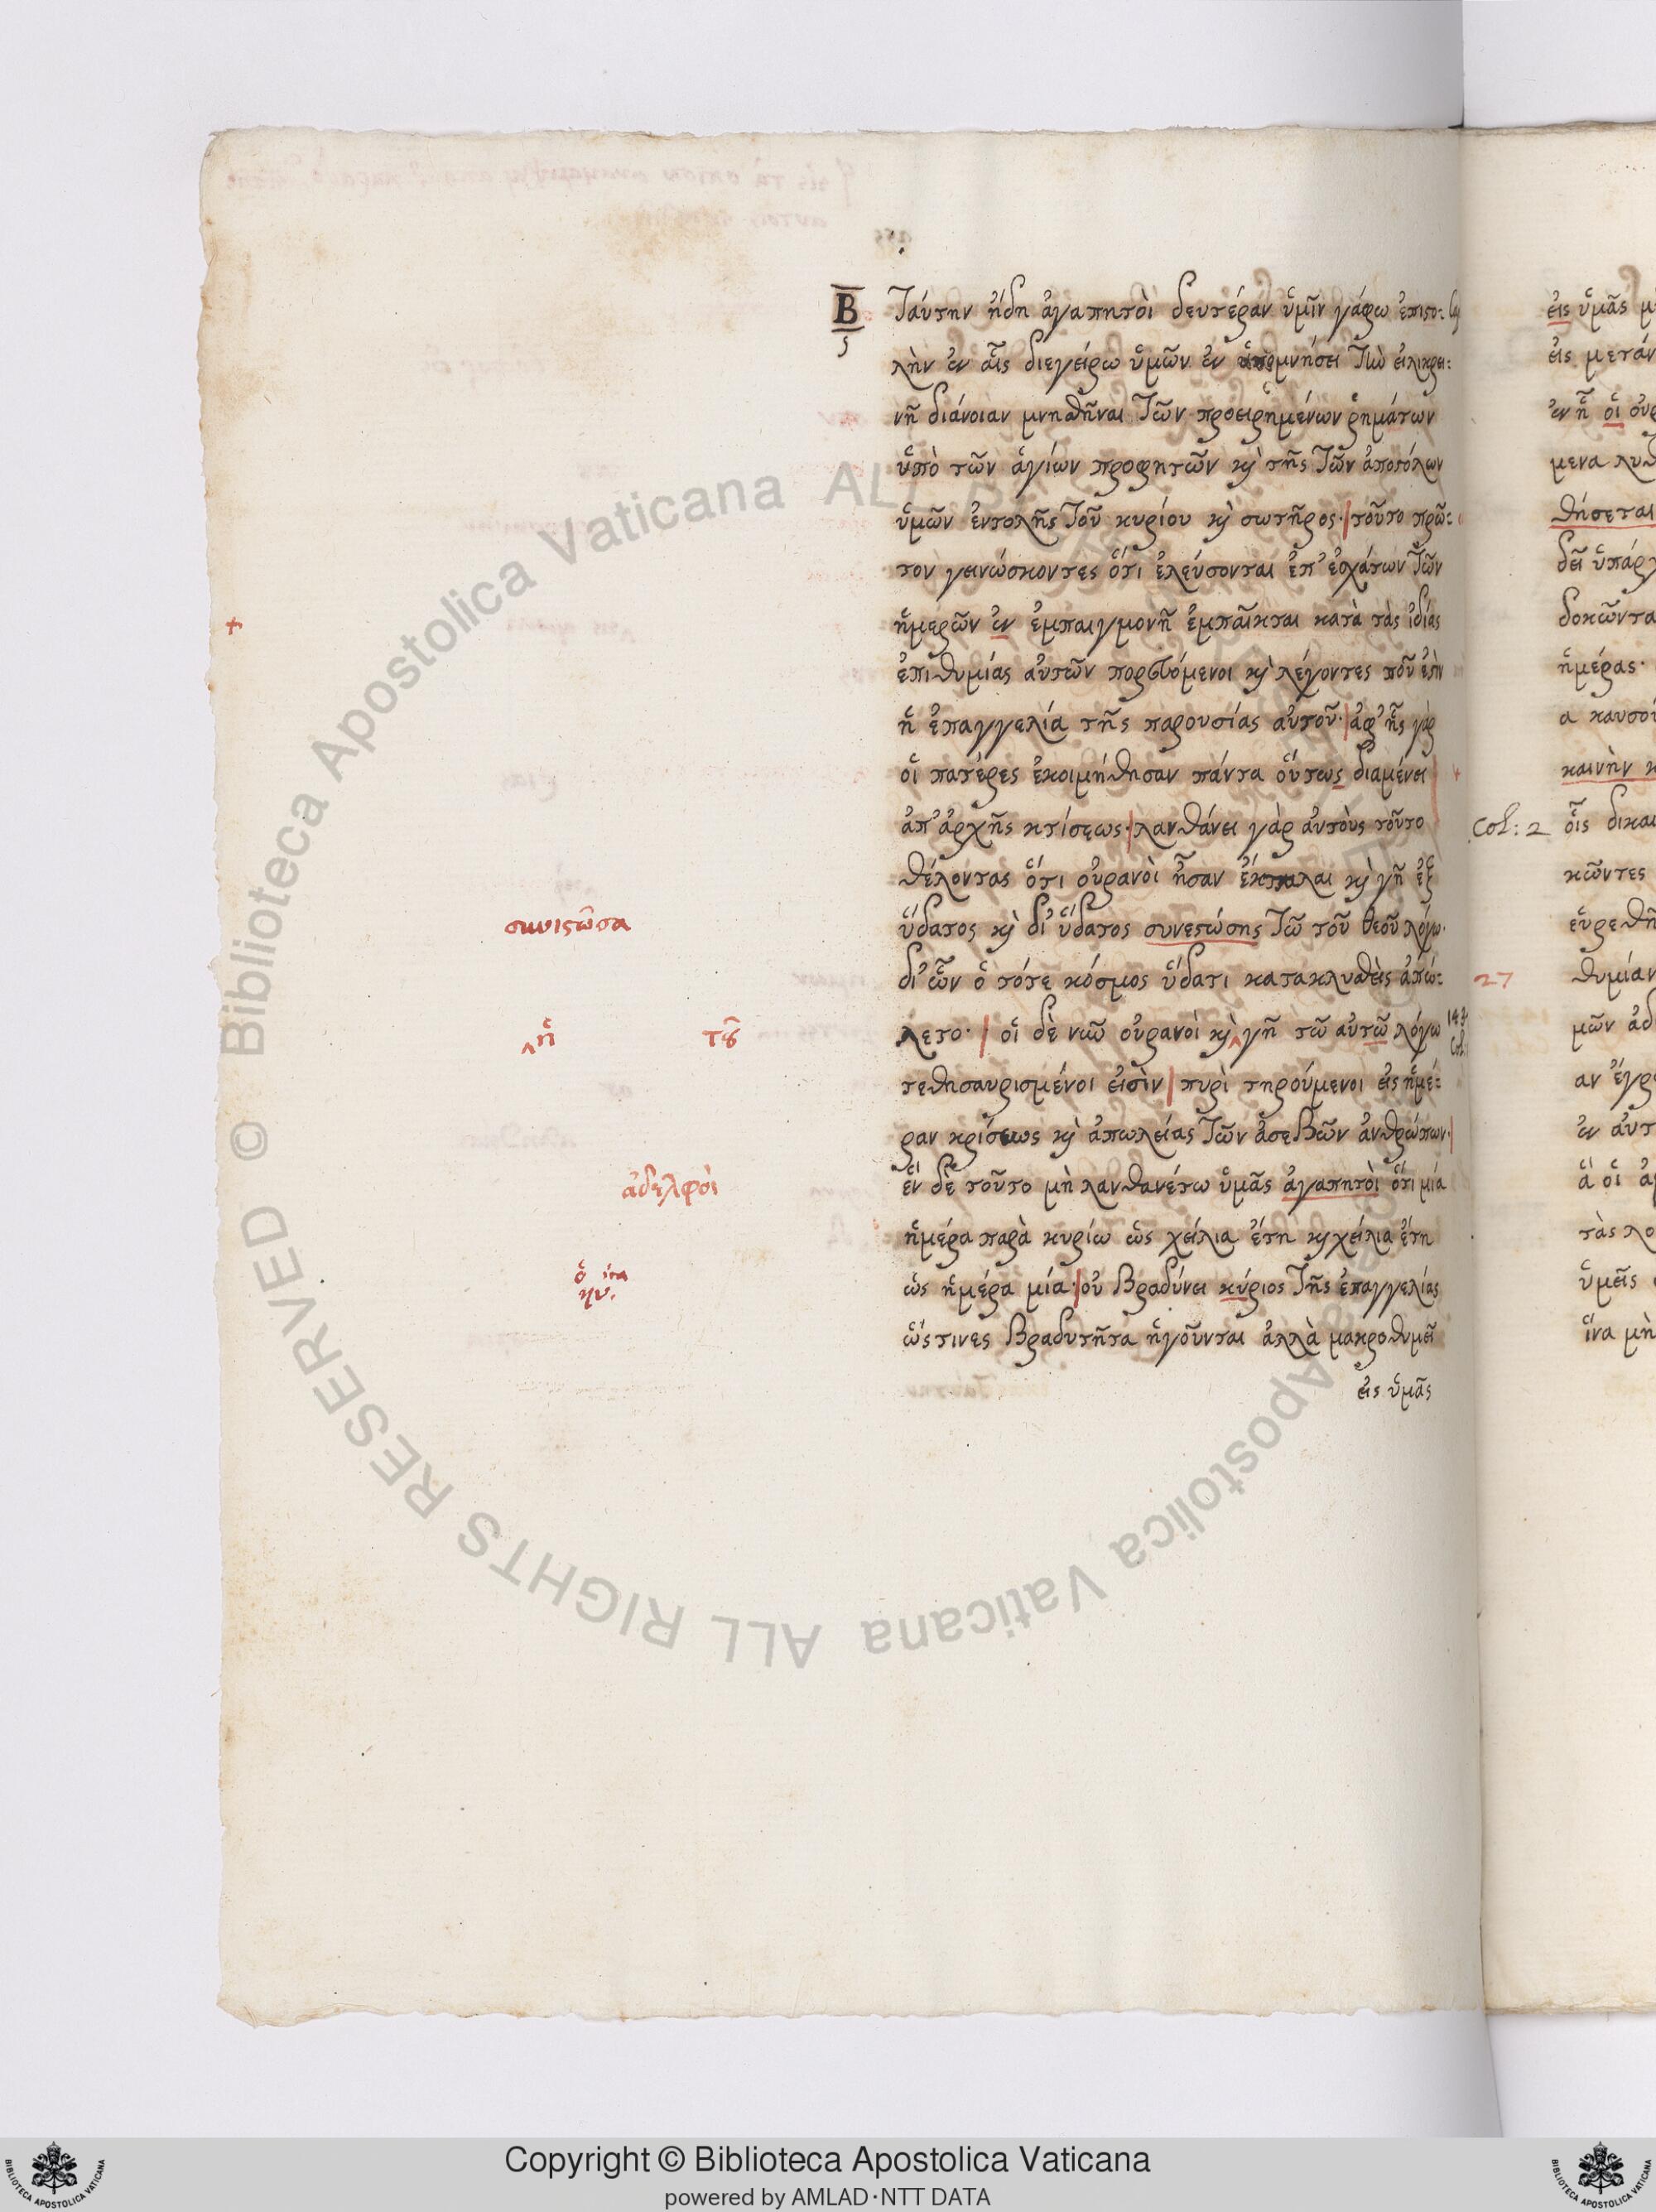 Β Ταύτην ἤδη ἀγαπητοὶ δευτέραν ὑμῖν γράφω ἐπιστο:
ς λὴν ἐν αἷς διεγείρω ὑμῶν ἐν ὑπομνήσει τὴν εἰλικρει:
νῆ διάνοιαν μνησθῆναι τῶν προειρημένων ῥημάτων
ὑπὸ τῶν ἁγίων προφητῶν κ̀ τῆς τῶν ἀποστόλων
ὑμῶν ἐντολῆς τοῦ κυρίου κ̀ σωτῆρος· | τοῦτο πρῶ:
τον γεινώσκοντες ὅτι ἐλεύσονται ἐπ' ἐσχάτων τῶν
+ ἡμερῶν ἐν ἐμπαιγμονῆ ἐμπαῖκται κατὰ τὰς ἰδίας
ἐπιθυμίας αὐτῶν πορευόμενοι κ̀ λέγοντες ποῦ ἐστὶν
ἡ ἐπαγγελία τῆς παρουσίας αὐτοῦ· | ἀφ' ἧς γὰρ
οἱ πατέρες ἐκοιμήθησαν πάντα οὕτως διαμένει
ἀπ' ἀρχῆς κτίσεως· | λανθάνει γὰρ αὐτοὺς τοῦτο
θέλοντας ὅτι οὐρανοὶ ἦσαν ἔκπαλαι κ̀ γῆ ἐξ
συνιστῶσα ὕδατος κ̀ δι' ὕδατος συνεστώσης τῶ τοῦ θεοῦ λόγω·
δι' ὧν ὁ τότε κόσμος ὕδατι κατακλυσθεὶς ἀπώ:
‸ἡ τοῦ λετο· | οἱ δὲ νῦν οὐρανοὶ κ̀‸ γῆ τῶ αὐτῶ λόγω
τεθησαυρισμένοι εἰσὶν | πυρὶ τηρούμενοι εἰς ἡμέ:
ραν κρίσεως κ̀ ἀπωλείας τῶν ἀσεβῶν ἀνθρώπων· |
ἀδελφοὶ ἓν δὲ τοῦτο μὴ λανθανέτω ὑμᾶς ἀγαπητοὶ ὅτι μία
ἡμέρα παρὰ κυρίω ὡς χείλια ἔτη κ̀ χείλια ἔτη
ὁ ὡς ἡμέρα μία· | οὐ βραδύνει κύριος τῆς ἐπαγγελίας
ὥς τινες βραδυτῆτα ἡγοῦνται ἀλλὰ μακροθυμεῖ
εἰς ὑμᾶς
Col: 2
27
εἰς ὑμᾶς
εἰς μετάν
ἐν ἧ οἱ οὐρ
μενα λυθ
θήσεται
δεῖ ὑπάρχ
δοκῶντα
ἡμέρας·
α καυσού
καινὴν κ
οἷς δικαι
κῶντες
εὑρεθῆ
θυμίαν
μῶν ἀδ
αν ἔγρ
ἐν αὐτ
ἃ οἱ ἀ
τὰς λο
ὑμεῖς
ἵνα μὴ
Copyright © Biblioteca Apostolica Vaticana
powered by AMLAD·NTT DATA
© Biblioteca Apostolica Vaticana ALL RIGHTS RESERVED